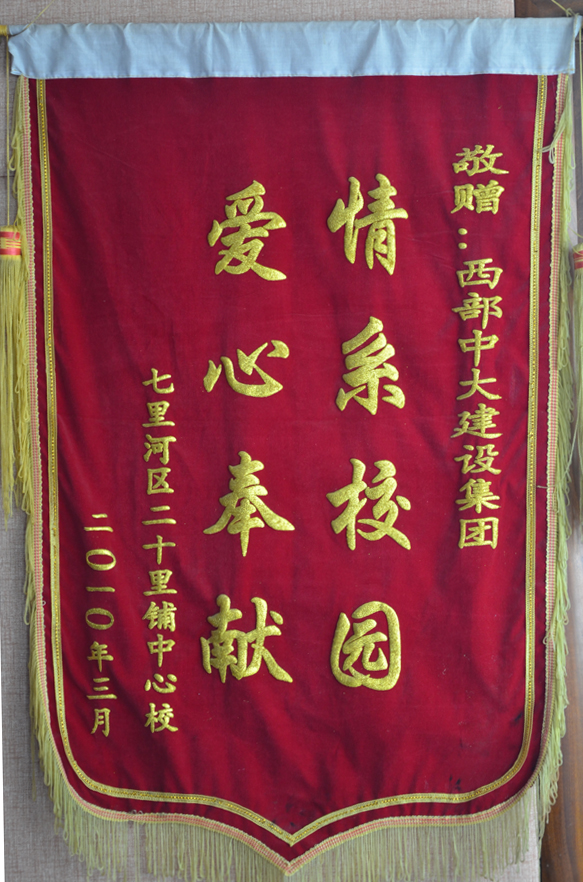 敬赠：西部中大建设集团
情系校园
爱心奉献
七里河区二十里铺中心校
二〇一〇年三月